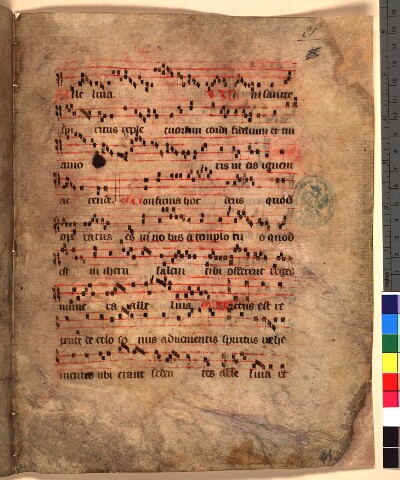 lle luia. Veni sancte
spi ritus reple tuorum corda fidelium et tui
amo ris in eis ignem
ac cende. Confirma hoc deus quod
ope ratus es in no bis a templo tu o quod
est in iheru salem tibi offerent reges
mune ra alle luia. Factus est re
pente de celo so nus advenientis spiritus vehe
mentis ubi erant seden tes alle luia et